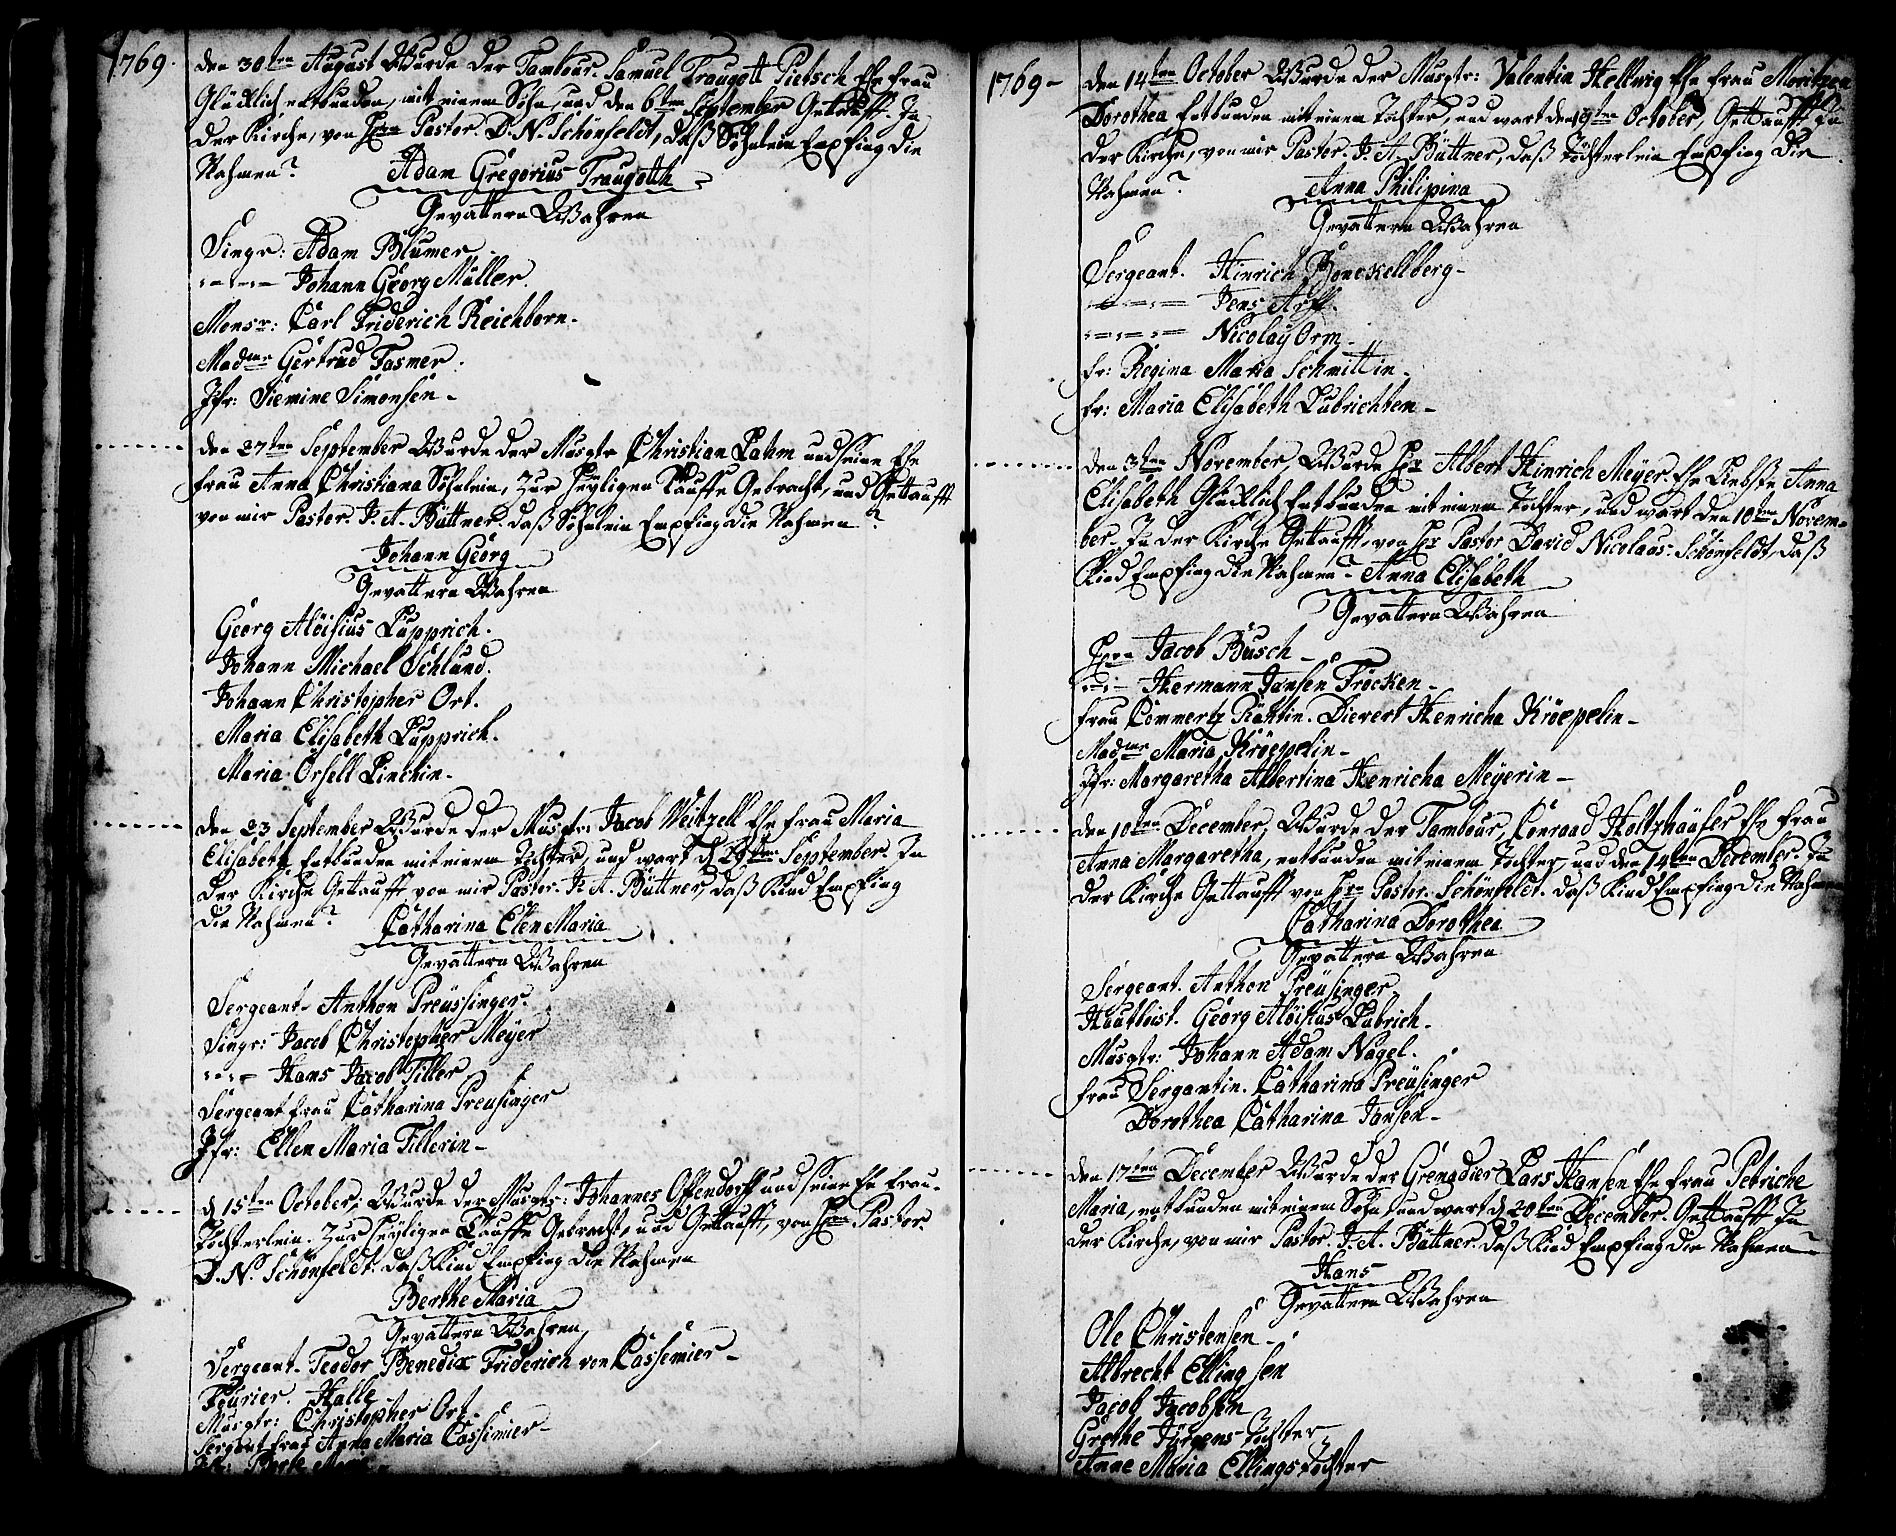 1769.
den 30ten August Wurde der Tambour. Samuel Traugott Pietsch Ehe frau
Glücklich entbunden, mit einem Sohn, und den 6ten September Getaufft. In
der Kirche, von Hrn Pastor. D. N. Schönfeldt, daß Söhnlein Empfing die
Nahmen? Adam Gregorius Traugoth
Gevattern Wahren
Singr: Adam Blumer.
Johann Georg Müller.
Monsr: Carl Friderich Reichborn.
Madme Gertrud Fasmer.
Jfr: Siemine Simonsen
den 27ten September Wurde der Musqtr Christian Lahm und seine Ehe
frau Anna Christiana Söhnlein, Zur Heyligen Tauffe Gebracht, und Getaufft
von mir Pastor. J. A. Büttner. daß Söhnlein Empfing die Nahmen?
Johann Georg
Gevattern Wahren
Georg Aloisius Lupprich.
Johann Michael Schlund.
Johann Christopher Ort.
Maria Elisabeth Lupprich.
Maria Orsell Linckin.
den 23 September Wurde der Musqtr: Jacob Weitzell Ehe frau Maria
Elisabeth Entbunden mit einem Tochter, und wart d 29ten September. In
der Kirche Getaufft von mir Pastor. J. A. Büttner, daß Kind Empfing
die Nahmen? Catharina Elen Maria
Gevattern Wahren
Sergeant. Anthon Preüssinger.
Singr: Jacob Christopher Meyer
Hans Jacob Tiller
Sergeant frau Catharina Preusinger
Jfr: Ellen Maria Tillerin
d 15ten October, Wurde der Musqtr: Johannes Offendorff und seine Ehe frau.
Töchterlein. Zur Heyligen Tauffe Gebracht, und Getaufft, von Hrn Pastor
D. N. Schönfeldt. daß Kind Empfing die Nahmen
Berthe Maria
Gevattern Wahren
Sergeant. Teodor Benedix Friderich von Cassemier
Feurier. Halle
Musqtr: Christopher Ort.
Sergeant frau Anna Maria Cassimier
1769
den 14ten October Wurde der Musqtr: Valentin Hellwig Ehe frau Moritzen
Dorothea Entbunden mit einem Tochter, und wart den 19ten October, Getaufft In
der Kirche, von mir Pastor. J. A. Büttner, daß Töchterlein Empfing die
Nahmen? Anna Philipina
Gevattern Wahren
Sergeant. Hinrich Bonckellberg
Jens
Nicolay Orm
fr: Regina Maria Schmittin.
fr: Maria Elisabeth Lubrichten
den 3ten November, Wurde Hr Albert Hinrich Meyer. Ehe Liebste Anna
Elisabeth Glücklich Entbunden mit einem Tochter, und wart den 10ten Novem-
ber. In der Kirche Getaufft, von Hr Pastor David Nicolaas Schönfeldt, daß
Kind Empfing die Nahmen Anna Elisabeth
Gevattern Wahren
Hrn Jacob Busch
Hermann Jansen Fröcken
Frau Commertz Räthin. Dievert Henricha Kröepelin
Madme Maria Kröepelin
Jfr: Margaretha Albertina Henricha Meyerin
den 10ten December, Wurde der Tambour, Conraad Holtzhäuser Ehe frau
Anna Margaretha, entbunden mit einem Tochter, und den 14ten December. In
der Kirche Getaufft von Hrn Pastor. Schönfeldt. daß Kind Empfing die Nahmen
Catharina Dorothea
Gevattern Wahren
Sergeant. Anthon Preusinger.
Hautboist. Georg Aloisius Lubrich.
Musqtr: Johann Adam Nagel.
frau Sergantin. Catharina Preüsinger
Dorothea Catharina Jansen
den 17ten December Wurde der Grenadier Lars Hansen Ehe frau Petriche
Maria, entbunden mit einem Sohn, und wart d 20ten December. Getaufft In
der Kirche, von mir Pastor. J. A. Büttner. daß Kind Empfing die Nahmen
Hans
Gevattern Wahren
Ole Christensen
Albrecht Ellingsen
Jacob Jacobsen
Grethe Jürgens Tochter
Anne Maria Ellings Tochter